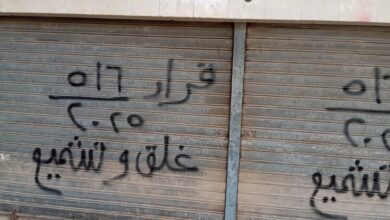 قرار ٥١٦
٢٠٢٥
غلق وتشميع
٥١
٢٠٢
تشميع